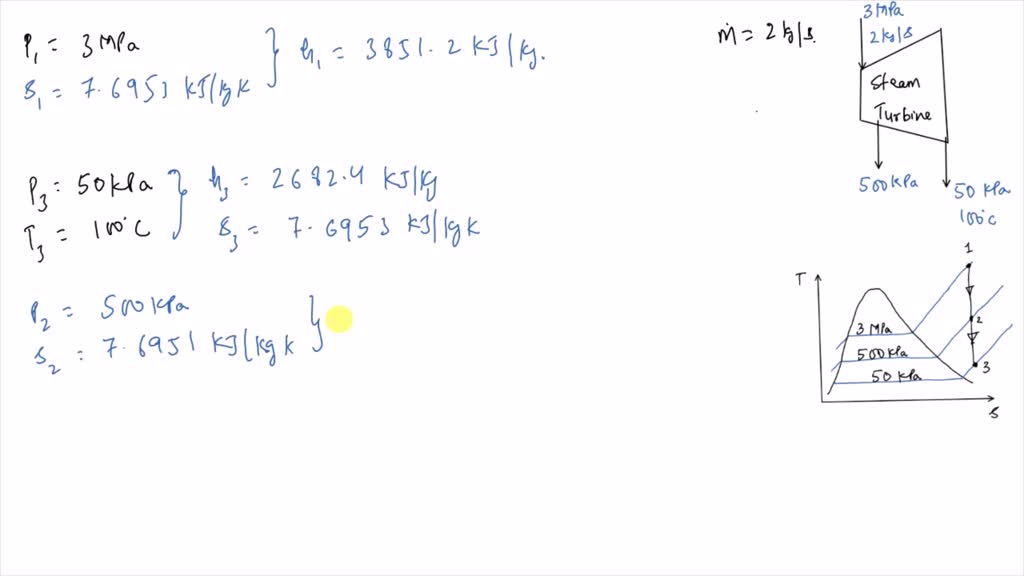 P₁ = 3 MPa
s₁ = 7.6953 kJ/kgK } h₁ = 3851.2 kJ/kg.
P₃ = 50 kPa } h₃ = 2682.4 kJ/kg
T₃ = 100°C s₃ = 7.6953 kJ/kgK
P₂ = 500 kPa
s₂ = 7.6951 kJ/kgK }
ṁ = 2 kg/s.
3 MPa
2 kg/s
Steam
Turbine
500 kPa
50 kPa
100°C
T
1
2
3 MPa
500 kPa
50 kPa
3
s